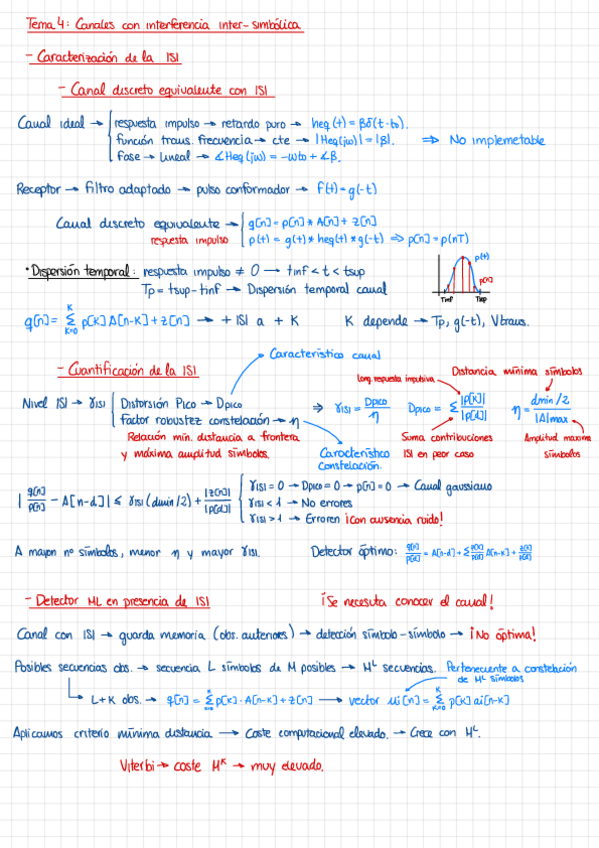 Tema 4: Canales con interferencia inter-simbólica
- Caracterización de la ISI
- Canal discreto equivalente con ISI
Canal ideal → respuesta impulso → retardo puro → heq(t) = βδ(t-to).
función trans. frecuencia → cte → |Heq(jω)| = |β|. ⇒ No implemetable
fase → lineal → ∠Heq(jω) = -ωto + ∠β.
Receptor → filtro adaptado → pulso conformador → f(t) = g(-t)
Canal discreto equivalente → q[n] = p[n] * A[n] + z[n]
respuesta impulso p(t) = g(t) * heq(t) * g(-t) ⇒ p[n] = p(nT)
· Dispersión temporal: respuesta impulso ≠ 0 → tinf < t < tsup
p(t)
Tp = tsup - tinf → Dispersión temporal canal
p[n]
Tinf Tsup
q[n] = Σ p[k] A[n-k] + z[n] → + ISI a + K K depende → Tp, g(-t), Vtrans.
K
K=0
Característica canal
- Cuantificación de la ISI
Distancia mínima símbolos
long. respuesta impulsiva
Nivel ISI → γISI Distorsión Pico → Dpico
factor robustez constelación → η
⇒ γISI = Dpico/η Dpico = Σ |p[k]|/|p[d]| η = dmin/2 / |A|max
Relación mín. distancia a frontera
y máxima amplitud símbolos.
Característica
Constelación.
Suma contribuciones
ISI en peor caso
Amplitud maxima
símbolos
| q[n]/p[n] - A[n-d] | ≤ γISI (dmin/2) + |z[n]|/|p[d]|
γISI = 0 → Dpico = 0 → p[n] = 0 → Canal gaussiano
γISI < 1 → No errores
γISI > 1 → Erroren ¡Con ausencia ruido!
A mayor nº símbolos, menor η y mayor γISI.
Detector óptimo: q[n]/p[d] = A[n-d] + Σ p[k]/p[d] A[n-k] + z[n]/p[d]
- Detector ML en presencia de ISI ¡Se necesita conocer el canal!
Canal con ISI → guarda memoria (obs. anteriores) → detección símbolo-símbolo → ¡No óptima!
Posibles secuencias obs. → secuencia L símbolos de M posibles → M^L secuencias. Perteneciente a constelación
de M^L símbolos
L+K obs. → q[n] = Σ p[k] · A[n-k] + z[n] → vector ui[n] = Σ p[k] ai[n-k]
K
K=0
Aplicamos criterio mínima distancia → Coste computacional elevado. → Crece con M^L.
Viterbi → coste M^K → muy elevado.